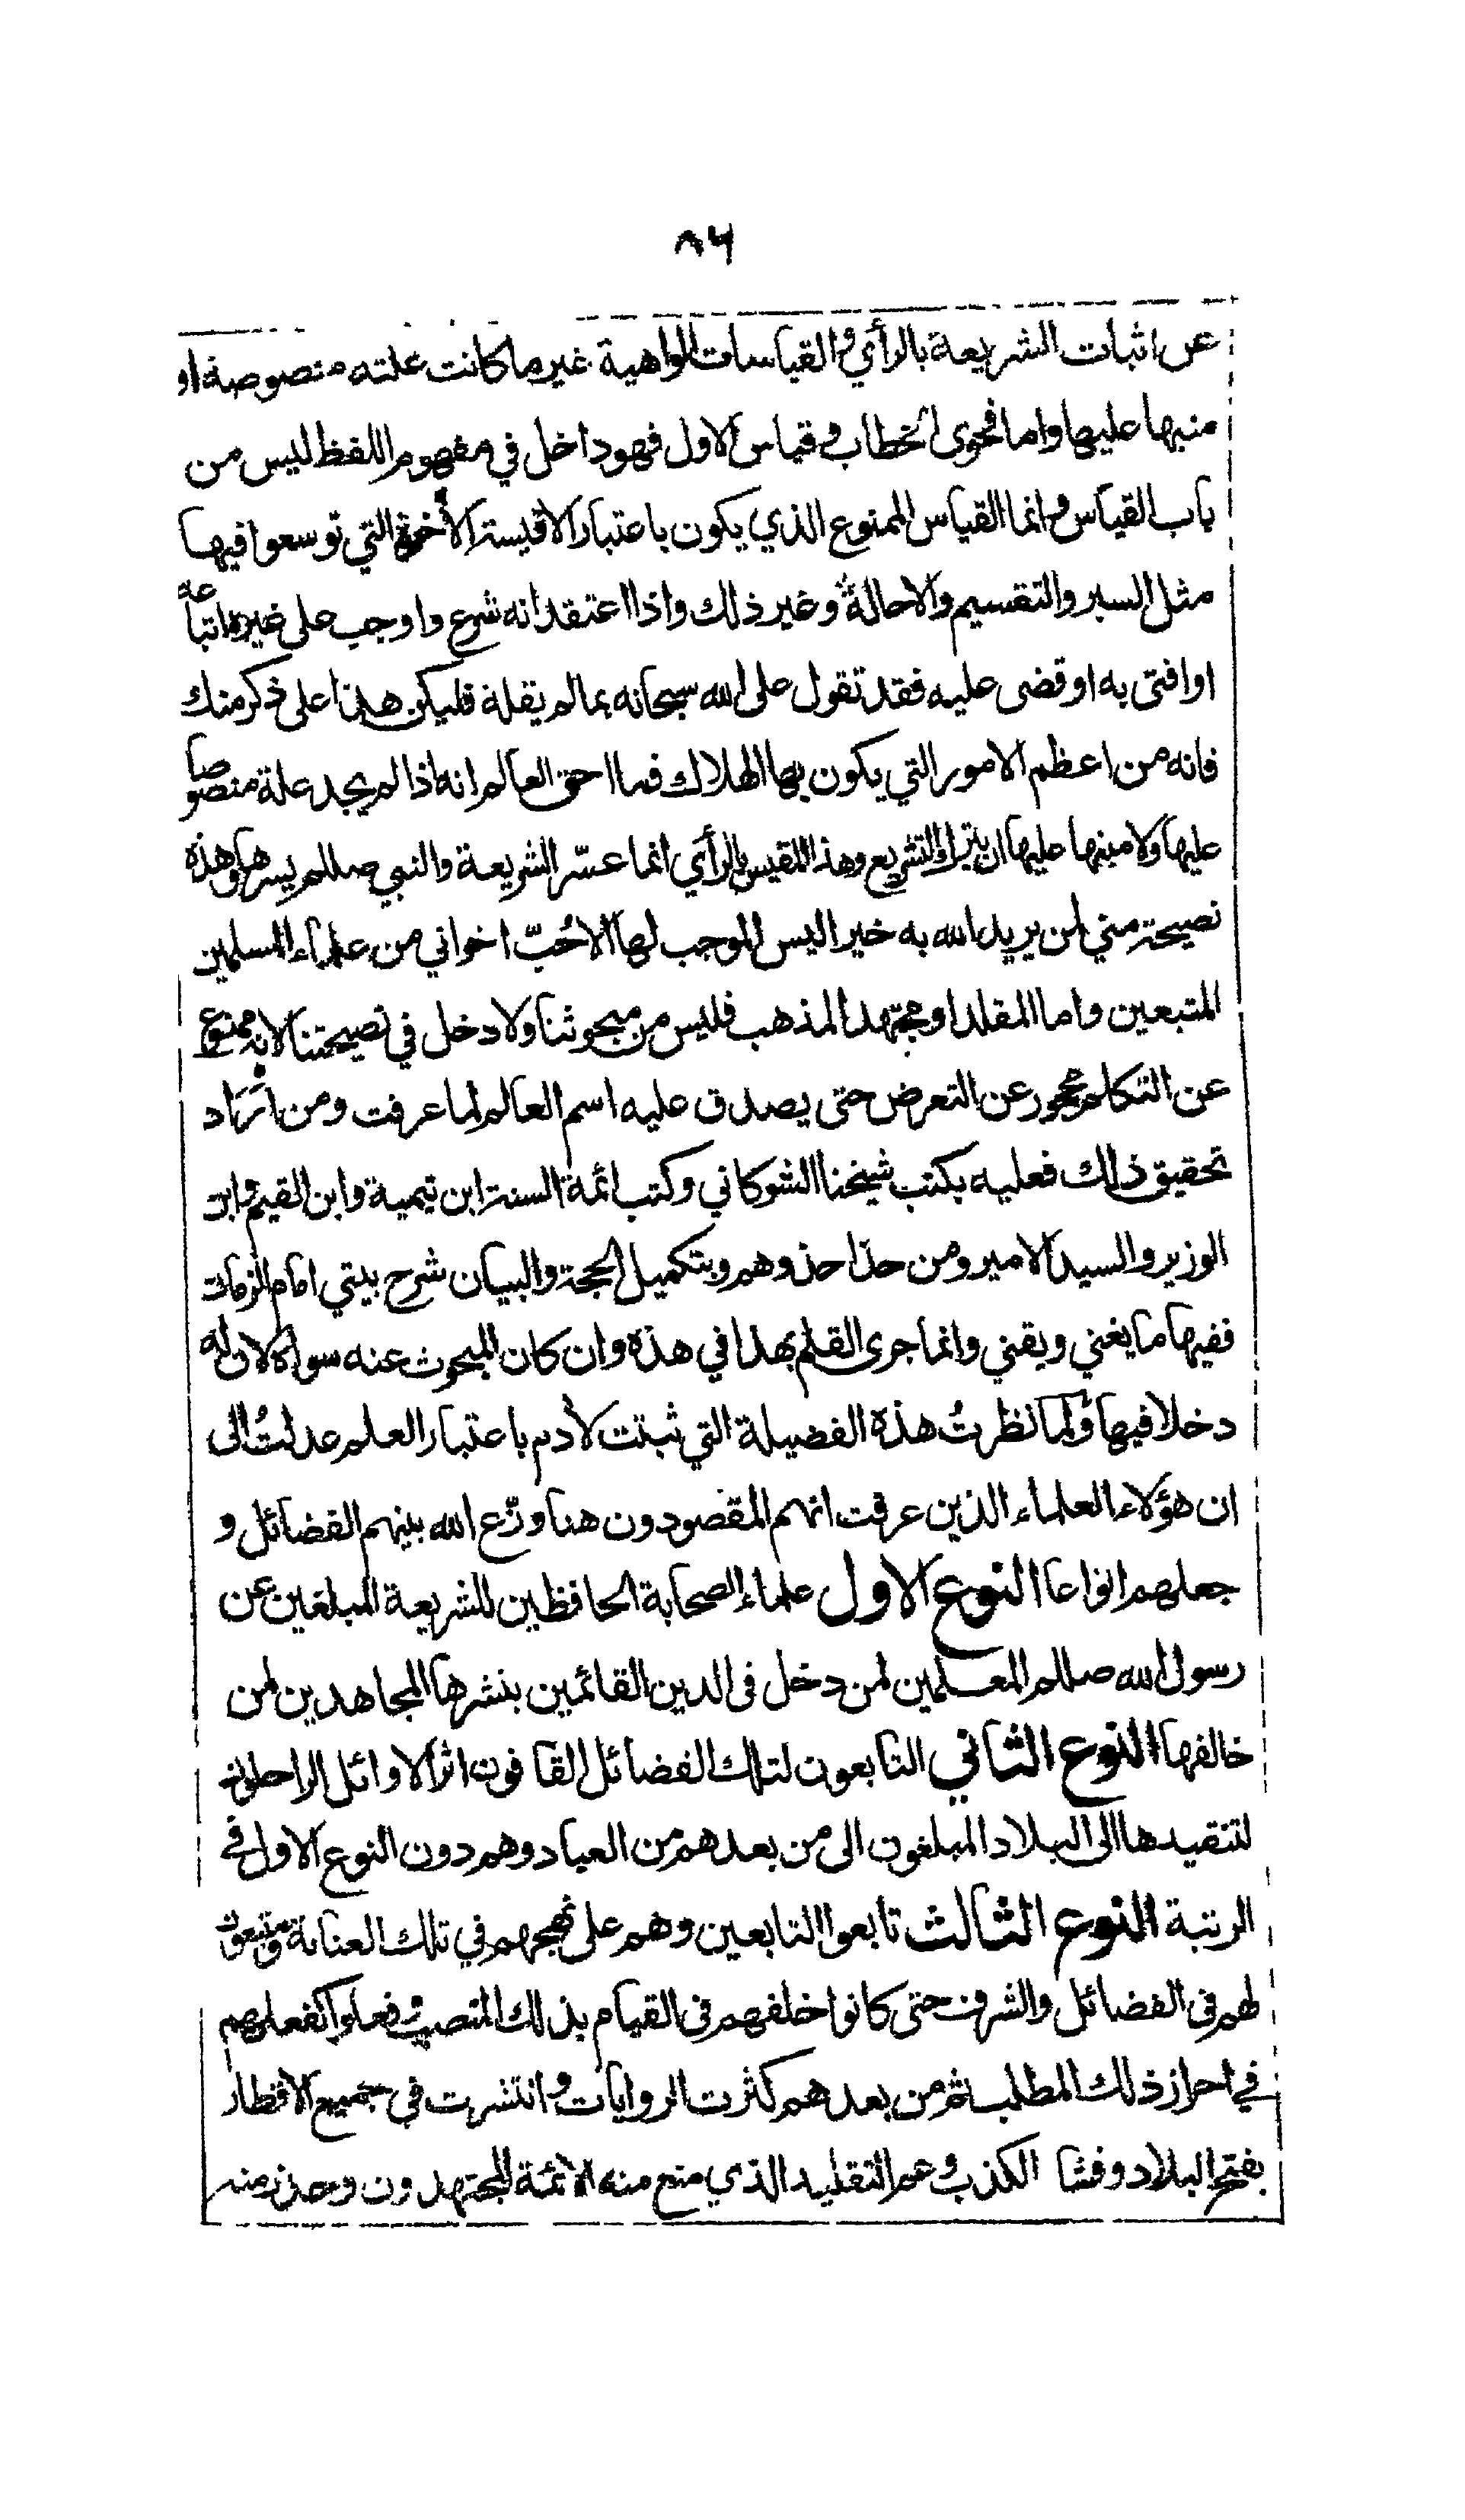 ٨٦
عن اثبات الشريعة بالرأي والقياسات الواهية غير ما كانت علته منصوصة او
منبها عليها واما فحوى الخطاب وقياس الاول فهو داخل في مفهوم اللفظ ليس من
باب القياس وانما القياس الممنوع الذي يكون باعتبار الاقيسة الأخرة التي توسعوا فيها
مثل السبر والتقسيم والاحالة وغير ذلك واذا اعتقد انه شرع واوجب على غيره اتباعه
او افتى به او قضى عليه فقد تقول على الله سبحانه بما لم يقلة فليكن هذا على ذكر منك
فانه من اعظم الامور التي يكون بها الهلاك فما احق العالم انه اذا لم يجد علة منصوصا
عليها ولا منبها عليها ان يترك التشريع وهذا المقيس بالرأي انما عسّر الشريعة والنبي صللم يسرها وهذه
نصيحة مني لمن يريد الله به خيرا ليس الموجب لها الا حُبّ اخواني من علماء المسلمين
المتبعين واما المقلد او مجتهد المذهب فليس من مبحوثنا ولا دخل في نصيحتنا لانه ممنوع
عن التكلم محجور عن التعرض حتى يصدق عليه اسم العالم لما عرفت ومن اراد
تحقيق ذلك فعليه بكتب شيخنا الشوكاني وكتب ائمة السنة ابن تيمية وابن القيم وابن
الوزير والسيد الامير ومن حذا حذوهم وبتكميل الحجة والبيان شرح بيتي امام الزمان
ففيها ما يغني ويقني وانما جرى القلم بهذا في هذه وان كان المبحوث عنه سواه لان له
دخلا فيها ولما نظرتُ هذه الفضيلة التي ثبتت لآدم باعتبار العلم عدلتُ الى
ان هؤلاء العلماء الذين عرفت انهم المقصودون هنا وزّع الله بينهم الفضائل و
جعلهم انواعا النوع الاول علماء الصحابة الحافظين للشريعة المبلغين عن
رسول الله صللم المعلمين لمن دخل في الدين القائمين بنشرها المجاهدين لمن
خالفها النوع الثاني التابعون لتلك الفضائل القافون اثر الاوائل الراحلون
لتنقيدها الى البلاد المبلغون الى من بعدهم من العباد وهم دون النوع الاول في
الرتبة النوع الثالث تابعوا التابعين وهم على نهجهم في تلك العناية
لهم في الفضائل والشرف حتى كانوا خلفهم في القيام بذلك المنصب وفعلوا كفعلهم
في احراز ذلك المطلب ثم من بعدهم كثرت الروايات وانتشرت في جميع الاقطار
بفتح البلاد وفشا الكذب وعم التقليد الذي منع منه الائمة المجتهدون وحذر منه